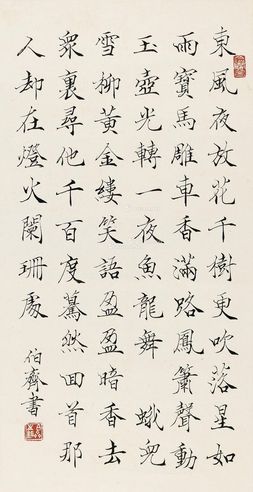 東風夜放花千樹更吹落星如
雨寶馬雕車香滿路鳳簫聲動
玉壺光轉一夜魚龍舞 蛾兒
雪柳黃金縷笑語盈盈暗香去
眾裏尋他千百度驀然回首那
人却在燈火闌珊處
伯齊書